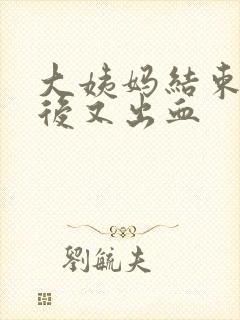 大姨妈結束
後又出血
劉毓夫